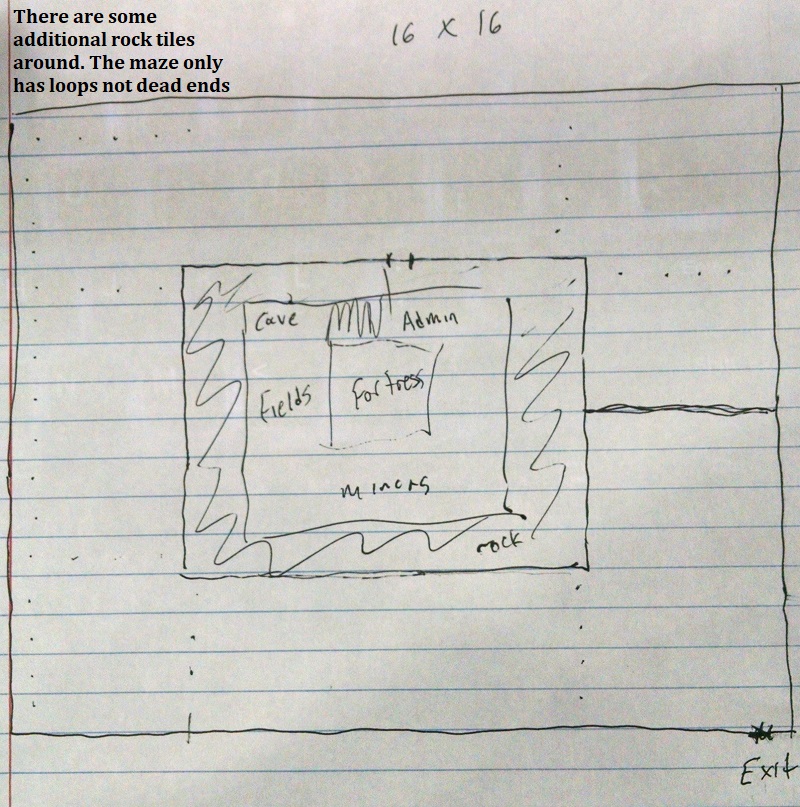 There are some
additional rock tiles
around. The maze only
has loops not dead ends
16 x 16
Cave
Admin
Fields
Fortress
miners
rock
Exit